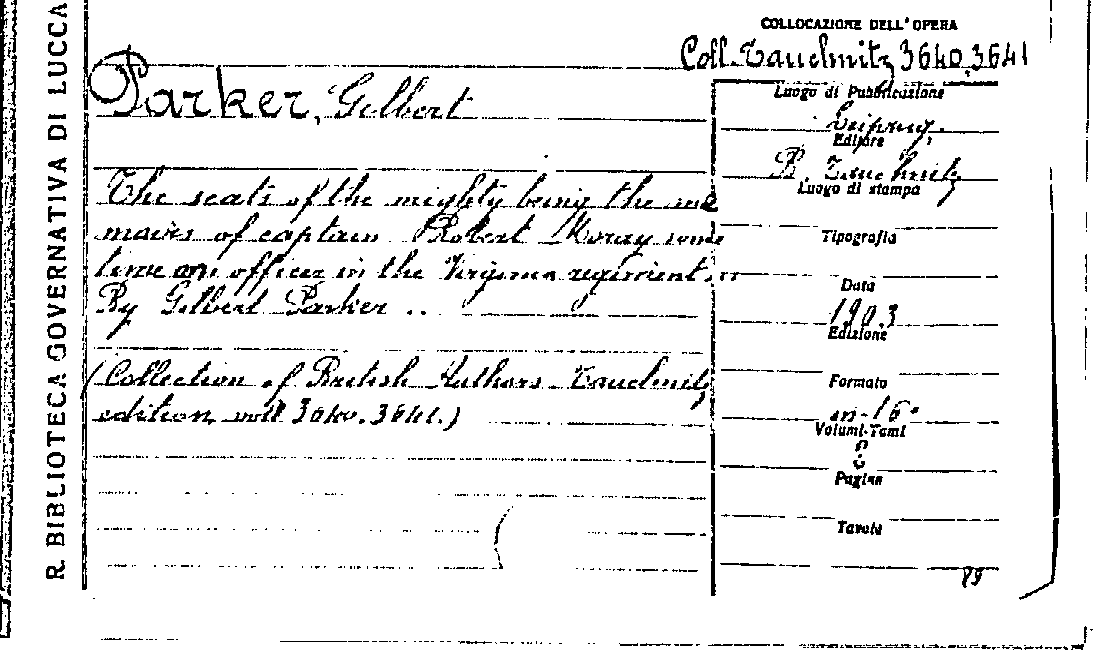 R. BIBLIOTECA GOVERNATIVA DI LUCCA
COLLOCAZIONE DELL'OPERA
Coll. Tauchnitz 3640, 3641
Parker, Gilbert
The seats of the mighty being the me
moirs of captain Robert Moray some
time an officer in the Virginia regiment...
By Gilbert Parker ..
(Collection of British Authors - Tauchnitz
edition, voll 3640. 3641.)
Luogo di Pubblicazione
Leipzig,
Editore
B. Tauchnitz
Luogo di stampa
Tipografia
Data
1903
Edizione
Formato
in-16°
Volumi-Tomi
2
Pagine
Tavole